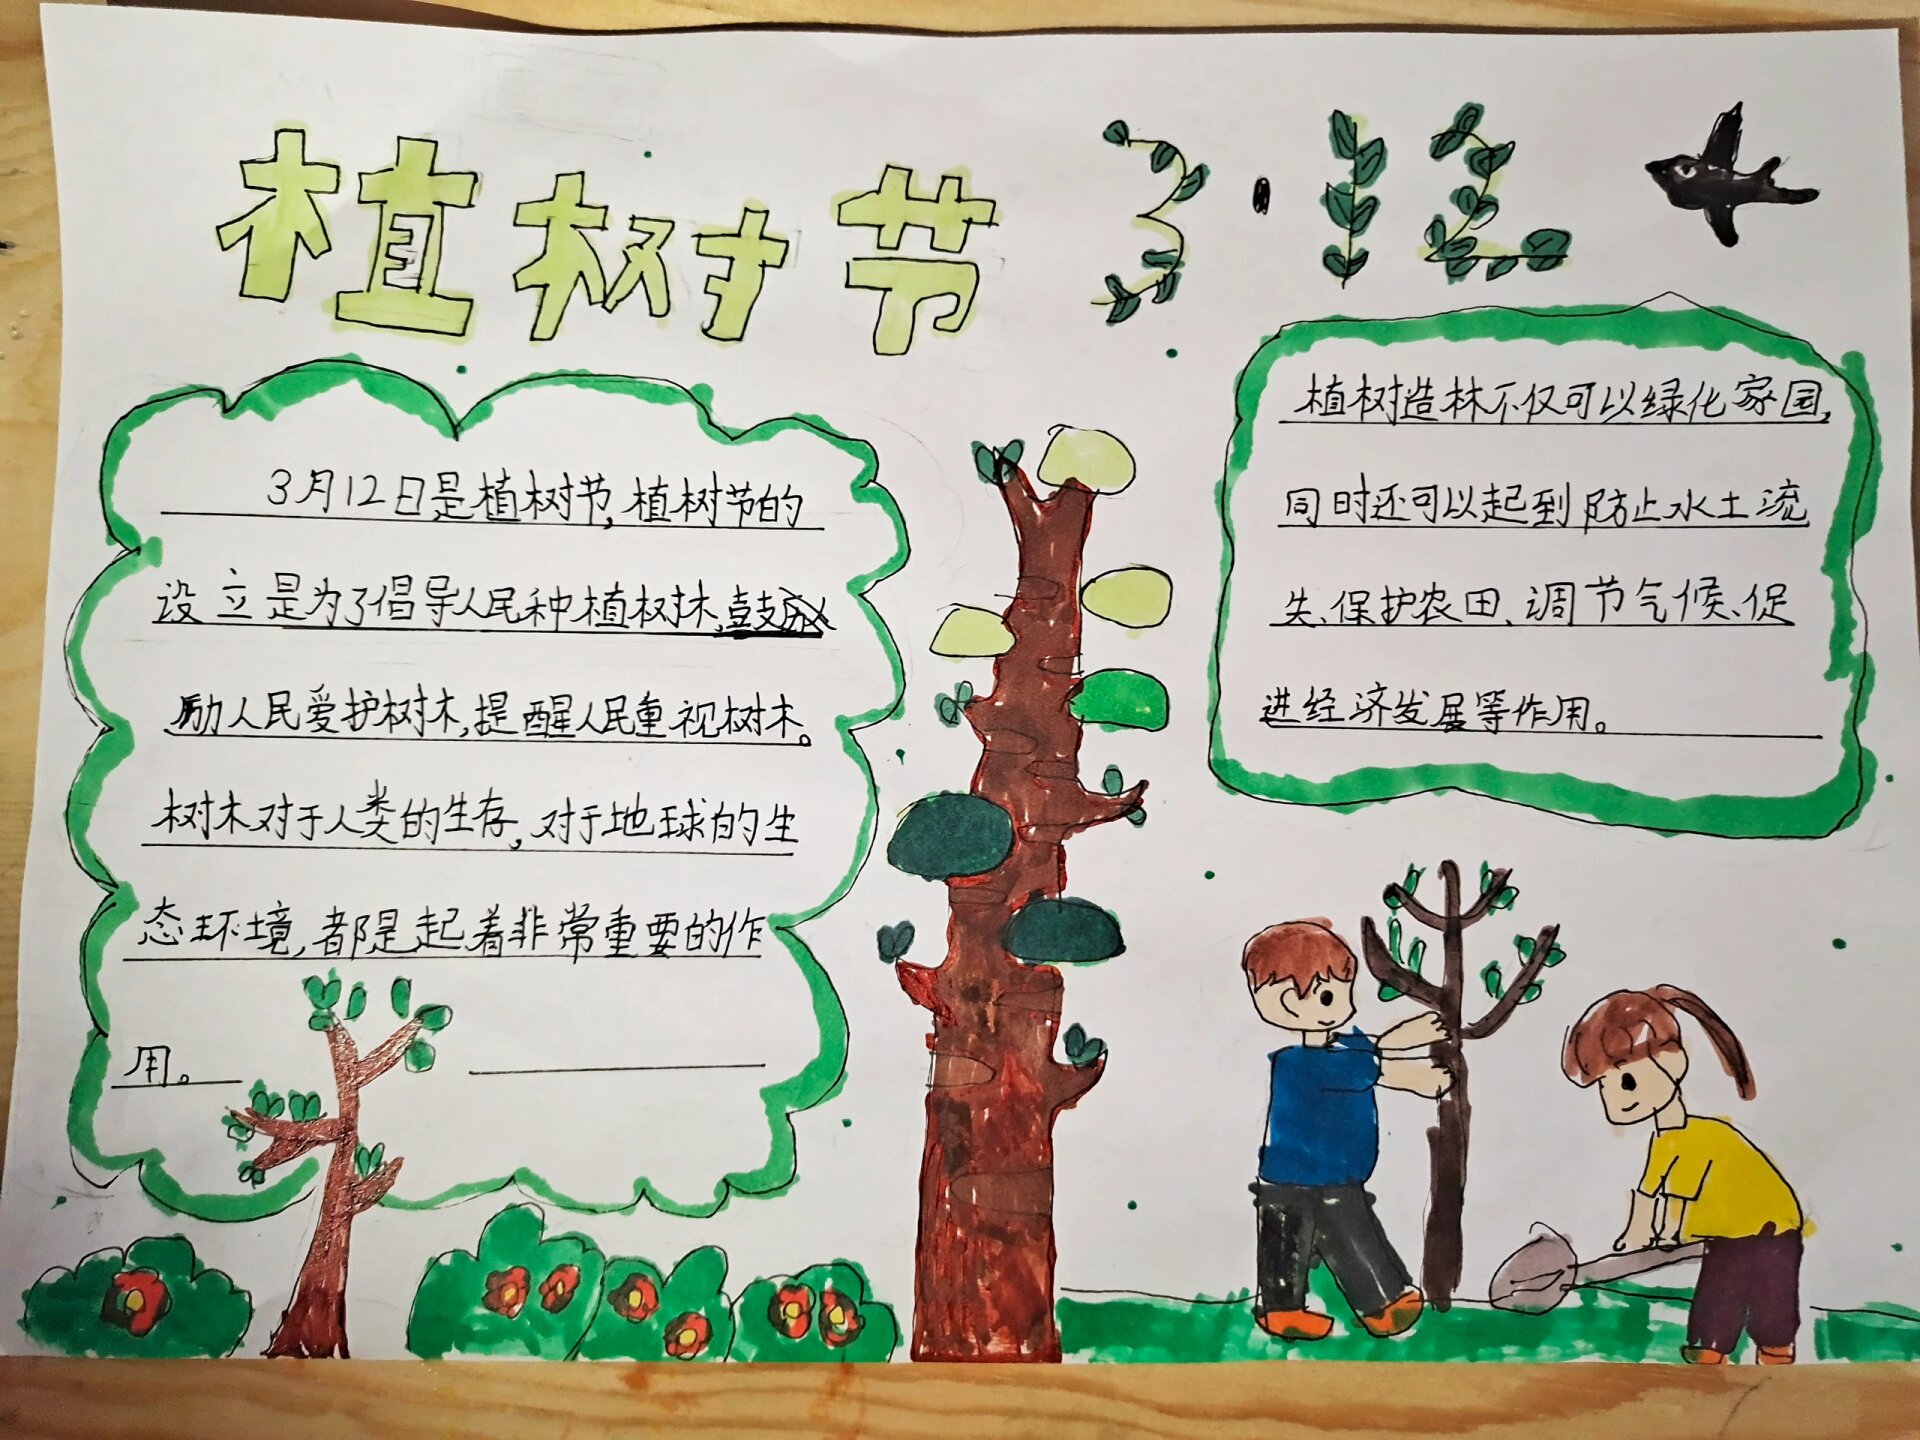 植树节 3·12
3月12日是植树节,植树节的
设立是为了倡导人民种植树木,鼓
励人民爱护树木,提醒人民重视树木。
树木对于人类的生存,对于地球的生
态环境,都是起着非常重要的作
用。
植树造林不仅可以绿化家园,
同时还可以起到防止水土流
失、保护农田、调节气候、促
进经济发展等作用。